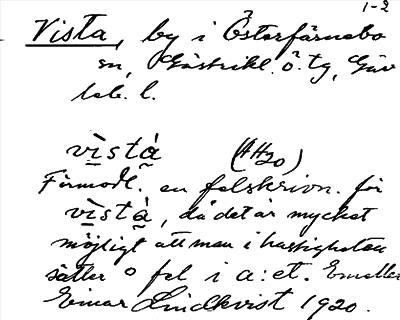 1-2
Vista, by i Österfärnebo
sn, Gästrikl. ö. tg, Gäv
leb. l.
vìstà (AH20)
Förmodl. en felskrivn. för
vìstà, då det är mycket
möjligt att man i hastigheten
sätter o fel i a: et. Emeller
Einar Lindkvist 1920.